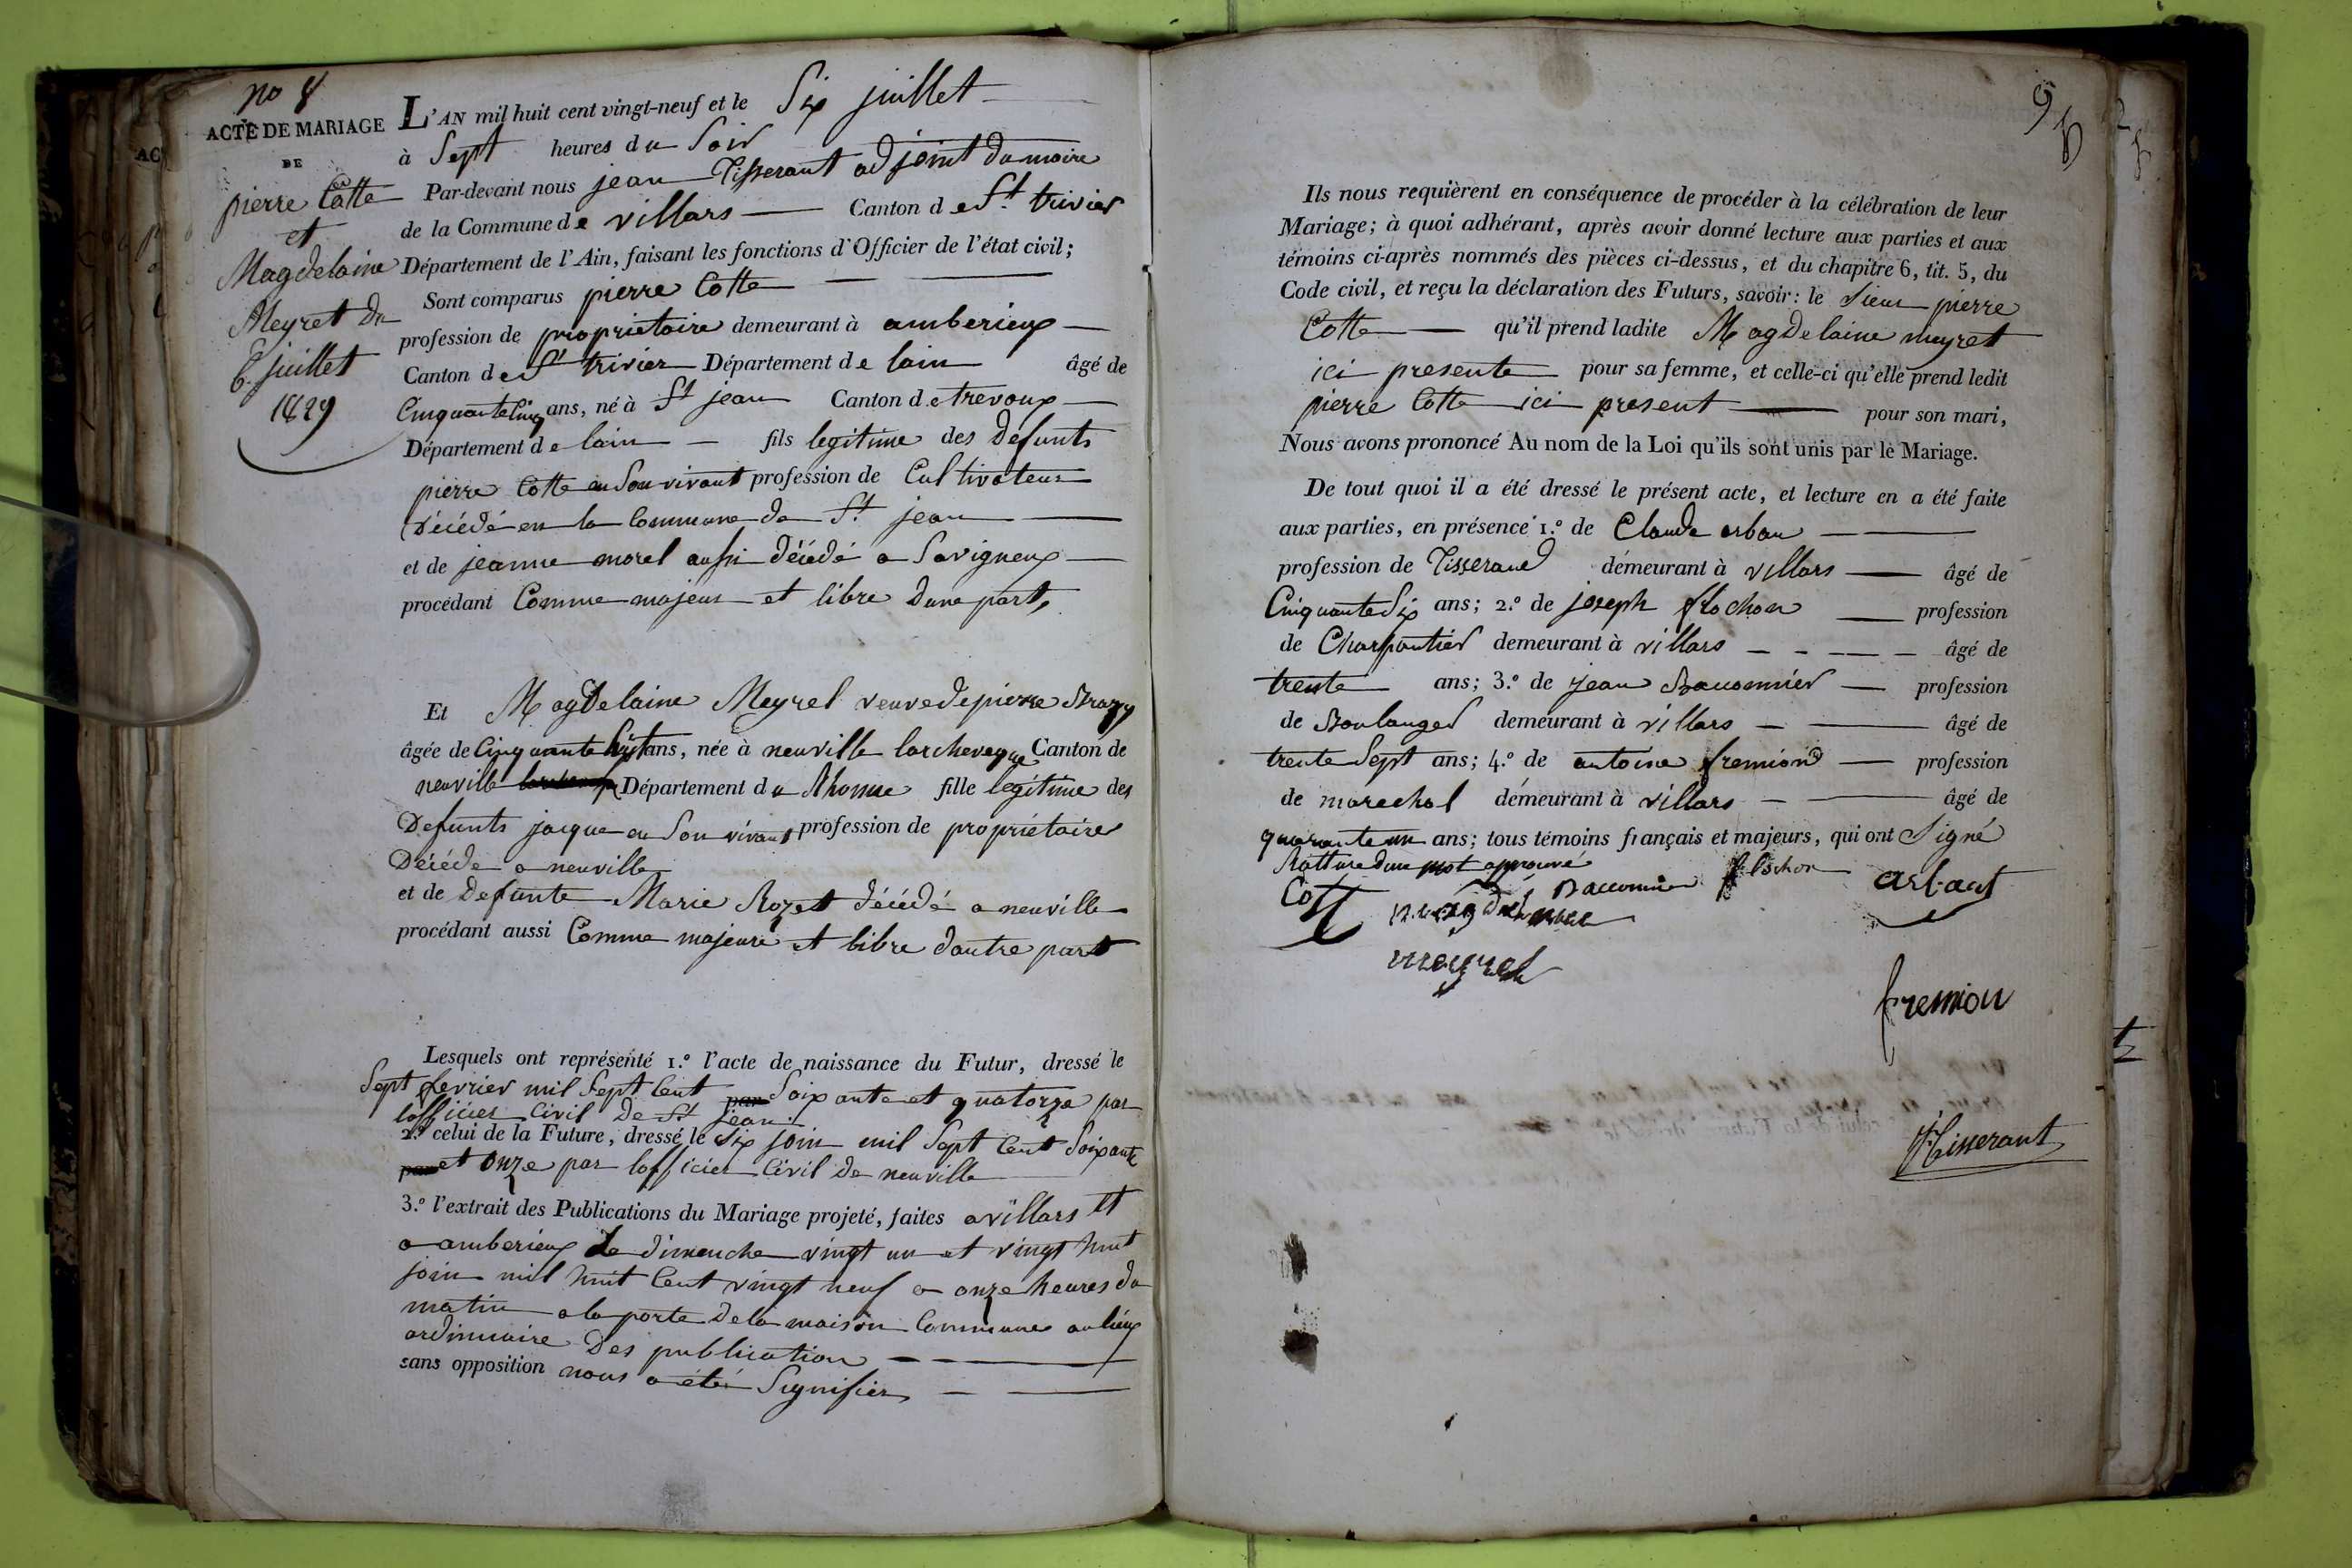 no 8
ACTE DE MARIAGE
DE
pierre Cotte
et
Magdelaine
Meyret du
6. juillet
1829
AC
L'AN mil huit cent vingt-neuf et le Six juillet
à Sept heures du Soir
Par-devant nous jean Tisserant adjoint du maire
de la Commune de villars — Canton de St. trivier
Département de l'Ain, faisant les fonctions d'Officier de l'état civil;
Sont comparus pierre Cotte —
profession de proprietaire demeurant à amberieux —
Canton de St trivier Département de lain âgé de
Cinquante Cinq ans, né à St jean Canton de trevoux —
Département de lain — fils legitime des defunts
pierre Cotte en Son vivant profession de Cultivateur
Décédé en la Commune de St. jean —
et de jeanne morel aussi décédé a Savigneux —
procédant Comme majeur et libre dune part,
Et Magdelaine Meyrel veuve de pierre
âgée de Cinquante huit ans, née à neuville larcheveque Canton de
neuville Département du Rhonne fille legitime des
Defunts jacque en Son vivant profession de propriétaire
Décéde a neuville
et de defunte Marie Rozet décédé a neuville
procédant aussi Comme majeure et libre dautre part
Lesquels ont représenté 1.º l'acte de naissance du Futur, dressé le
Sept fevrier mil Sept Cent par Soixante et quatorze par
lofficier Civil de St jean
2.º celui de la Future, dressé le Six join mil Sept Cent Soixante
par et onze par lofficier Civil de neuville
3.º l'extrait des Publications du Mariage projeté, faites a villars et
a amberieux le dimenche vingt un et vingt huit
join mil huit Cent vingt neuf a onze heures du
matin a la porte de la maison Commune au lieux
ordinnaire Des publication —
sans opposition nous a été Signifier —
Ils nous requièrent en conséquence de procéder à la célébration de leur
Mariage; à quoi adhérant, après avoir donné lecture aux parties et aux
témoins ci-après nommés des pièces ci-dessus, et du chapitre 6, tit. 5, du
Code civil, et reçu la déclaration des Futurs, savoir: le Sieur pierre
Cotte — qu'il prend ladite Magdelaine meyret
ici presente pour sa femme, et celle-ci qu'elle prend ledit
pierre Cotte ici present — pour son mari,
Nous avons prononcé Au nom de la Loi qu'ils sont unis par le Mariage.
De tout quoi il a été dressé le présent acte, et lecture en a été faite
aux parties, en présence 1.º de Claude arban —
profession de Tisserand demeurant à villars — âgé de
Cinquante Six ans; 2.º de joseph flochon — profession
de Charpantier demeurant à villars — âgé de
trente ans; 3.º de jean Baconnier — profession
de Boulanger demeurant à villars — âgé de
trente Sept ans; 4.º de antoine fremiond — profession
de marechal demeurant à villars — âgé de
quarante un ans; tous témoins français et majeurs, qui ont Signé
Ratture dun mot approuvé
Cott
Baconnier
flochon
meyrel
fremion
Tisserant